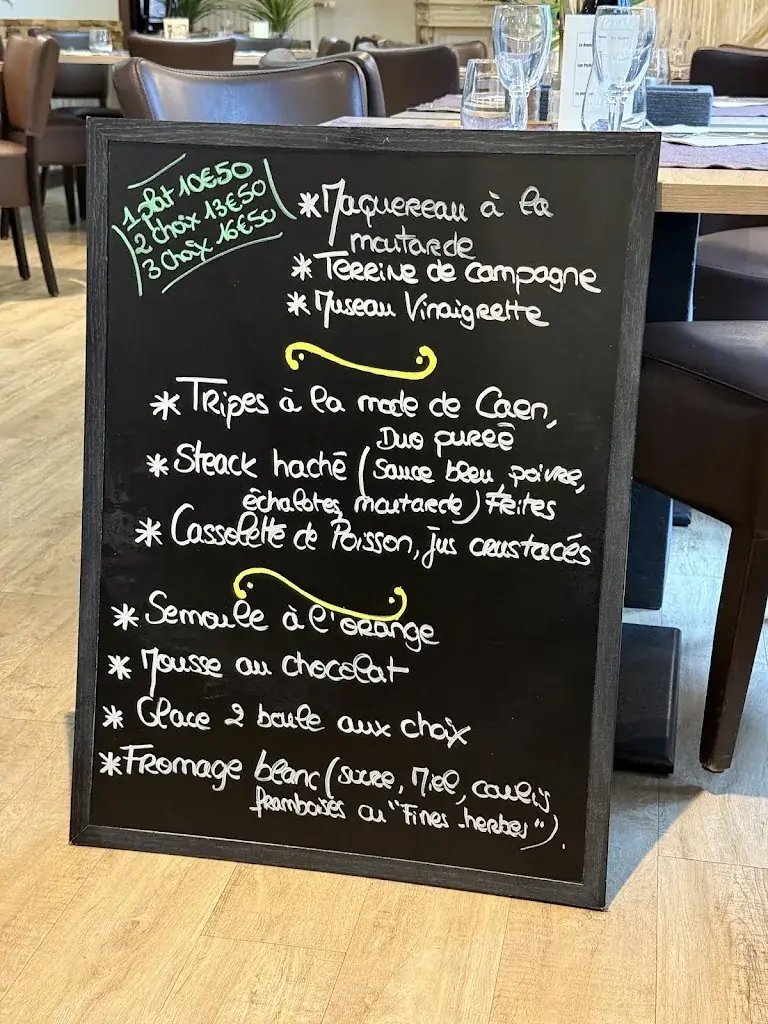 1 plat 10€50
2 choix 13€50
3 choix 16€50
*Maquereau à la
moutarde
*Terrine de campagne
*Museau Vinaigrette
*Tripes à la mode de Caen,
Duo pureê
*Steack hachê (sauce bleu, poivre,
êchalotes, moutarde) Frites
*Cassolette de Poisson, jus crustacés
*Semoule à l'orange
*Mousse au chocolat
*Glace 2 boule aux choix
*Fromage blanc (sucre, Miel, coulis
framboises ou "Fines herbes").